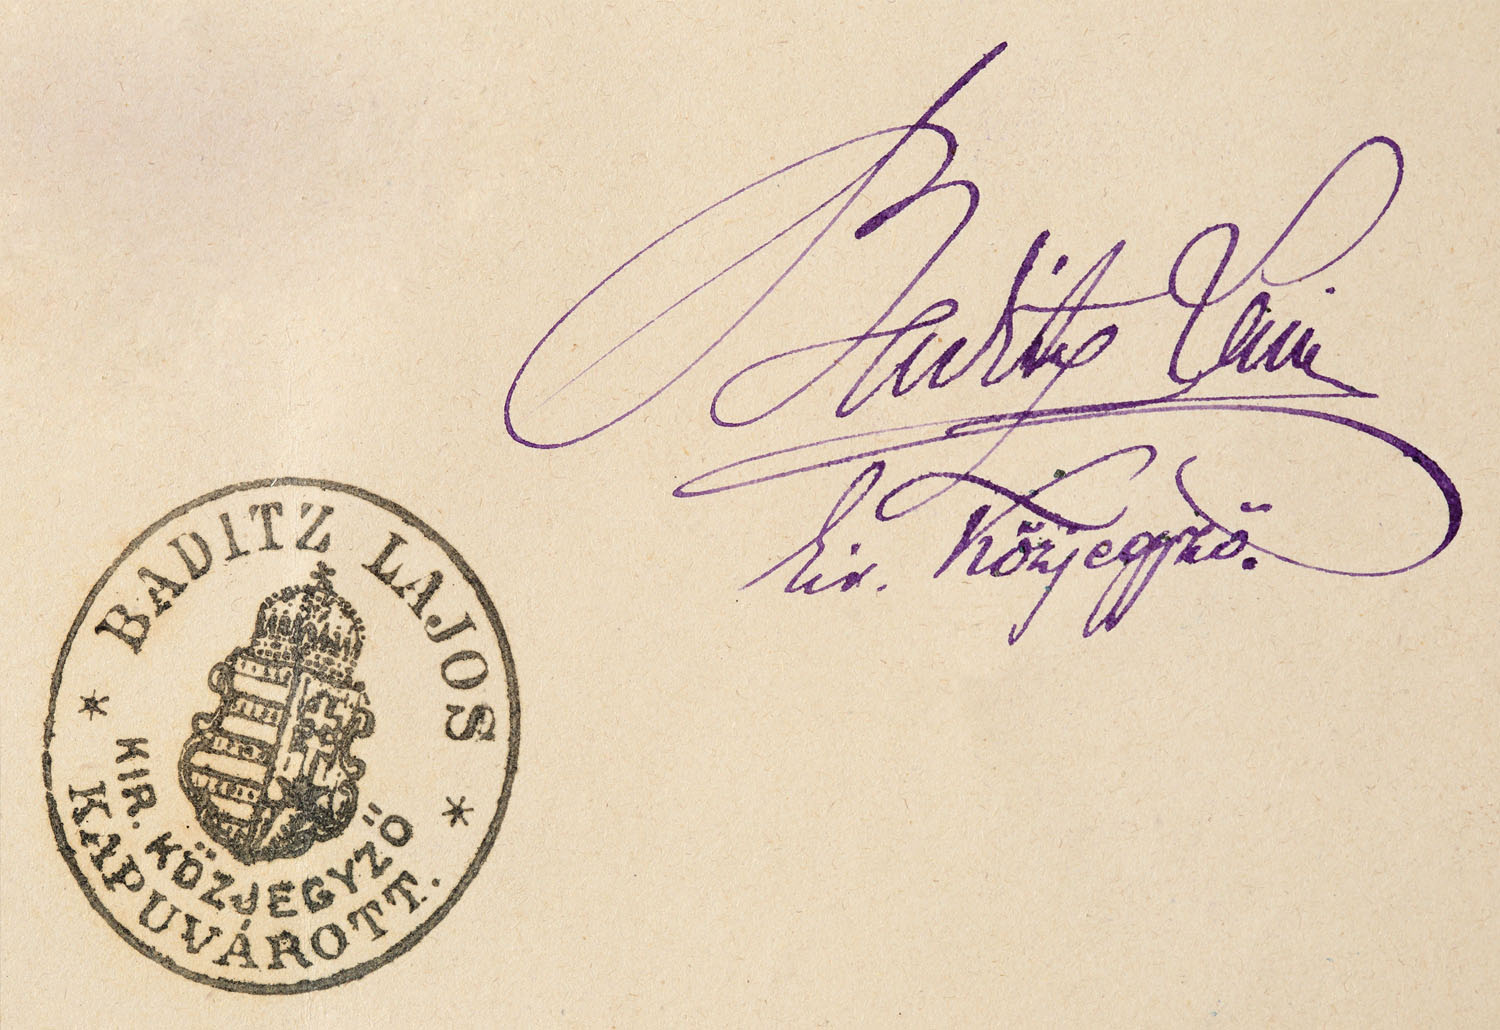 Baditz Lajos
kir. közjegyző.
BADITZ LAJOS
KIR. KÖZJEGYZŐ
KAPUVÁROTT.